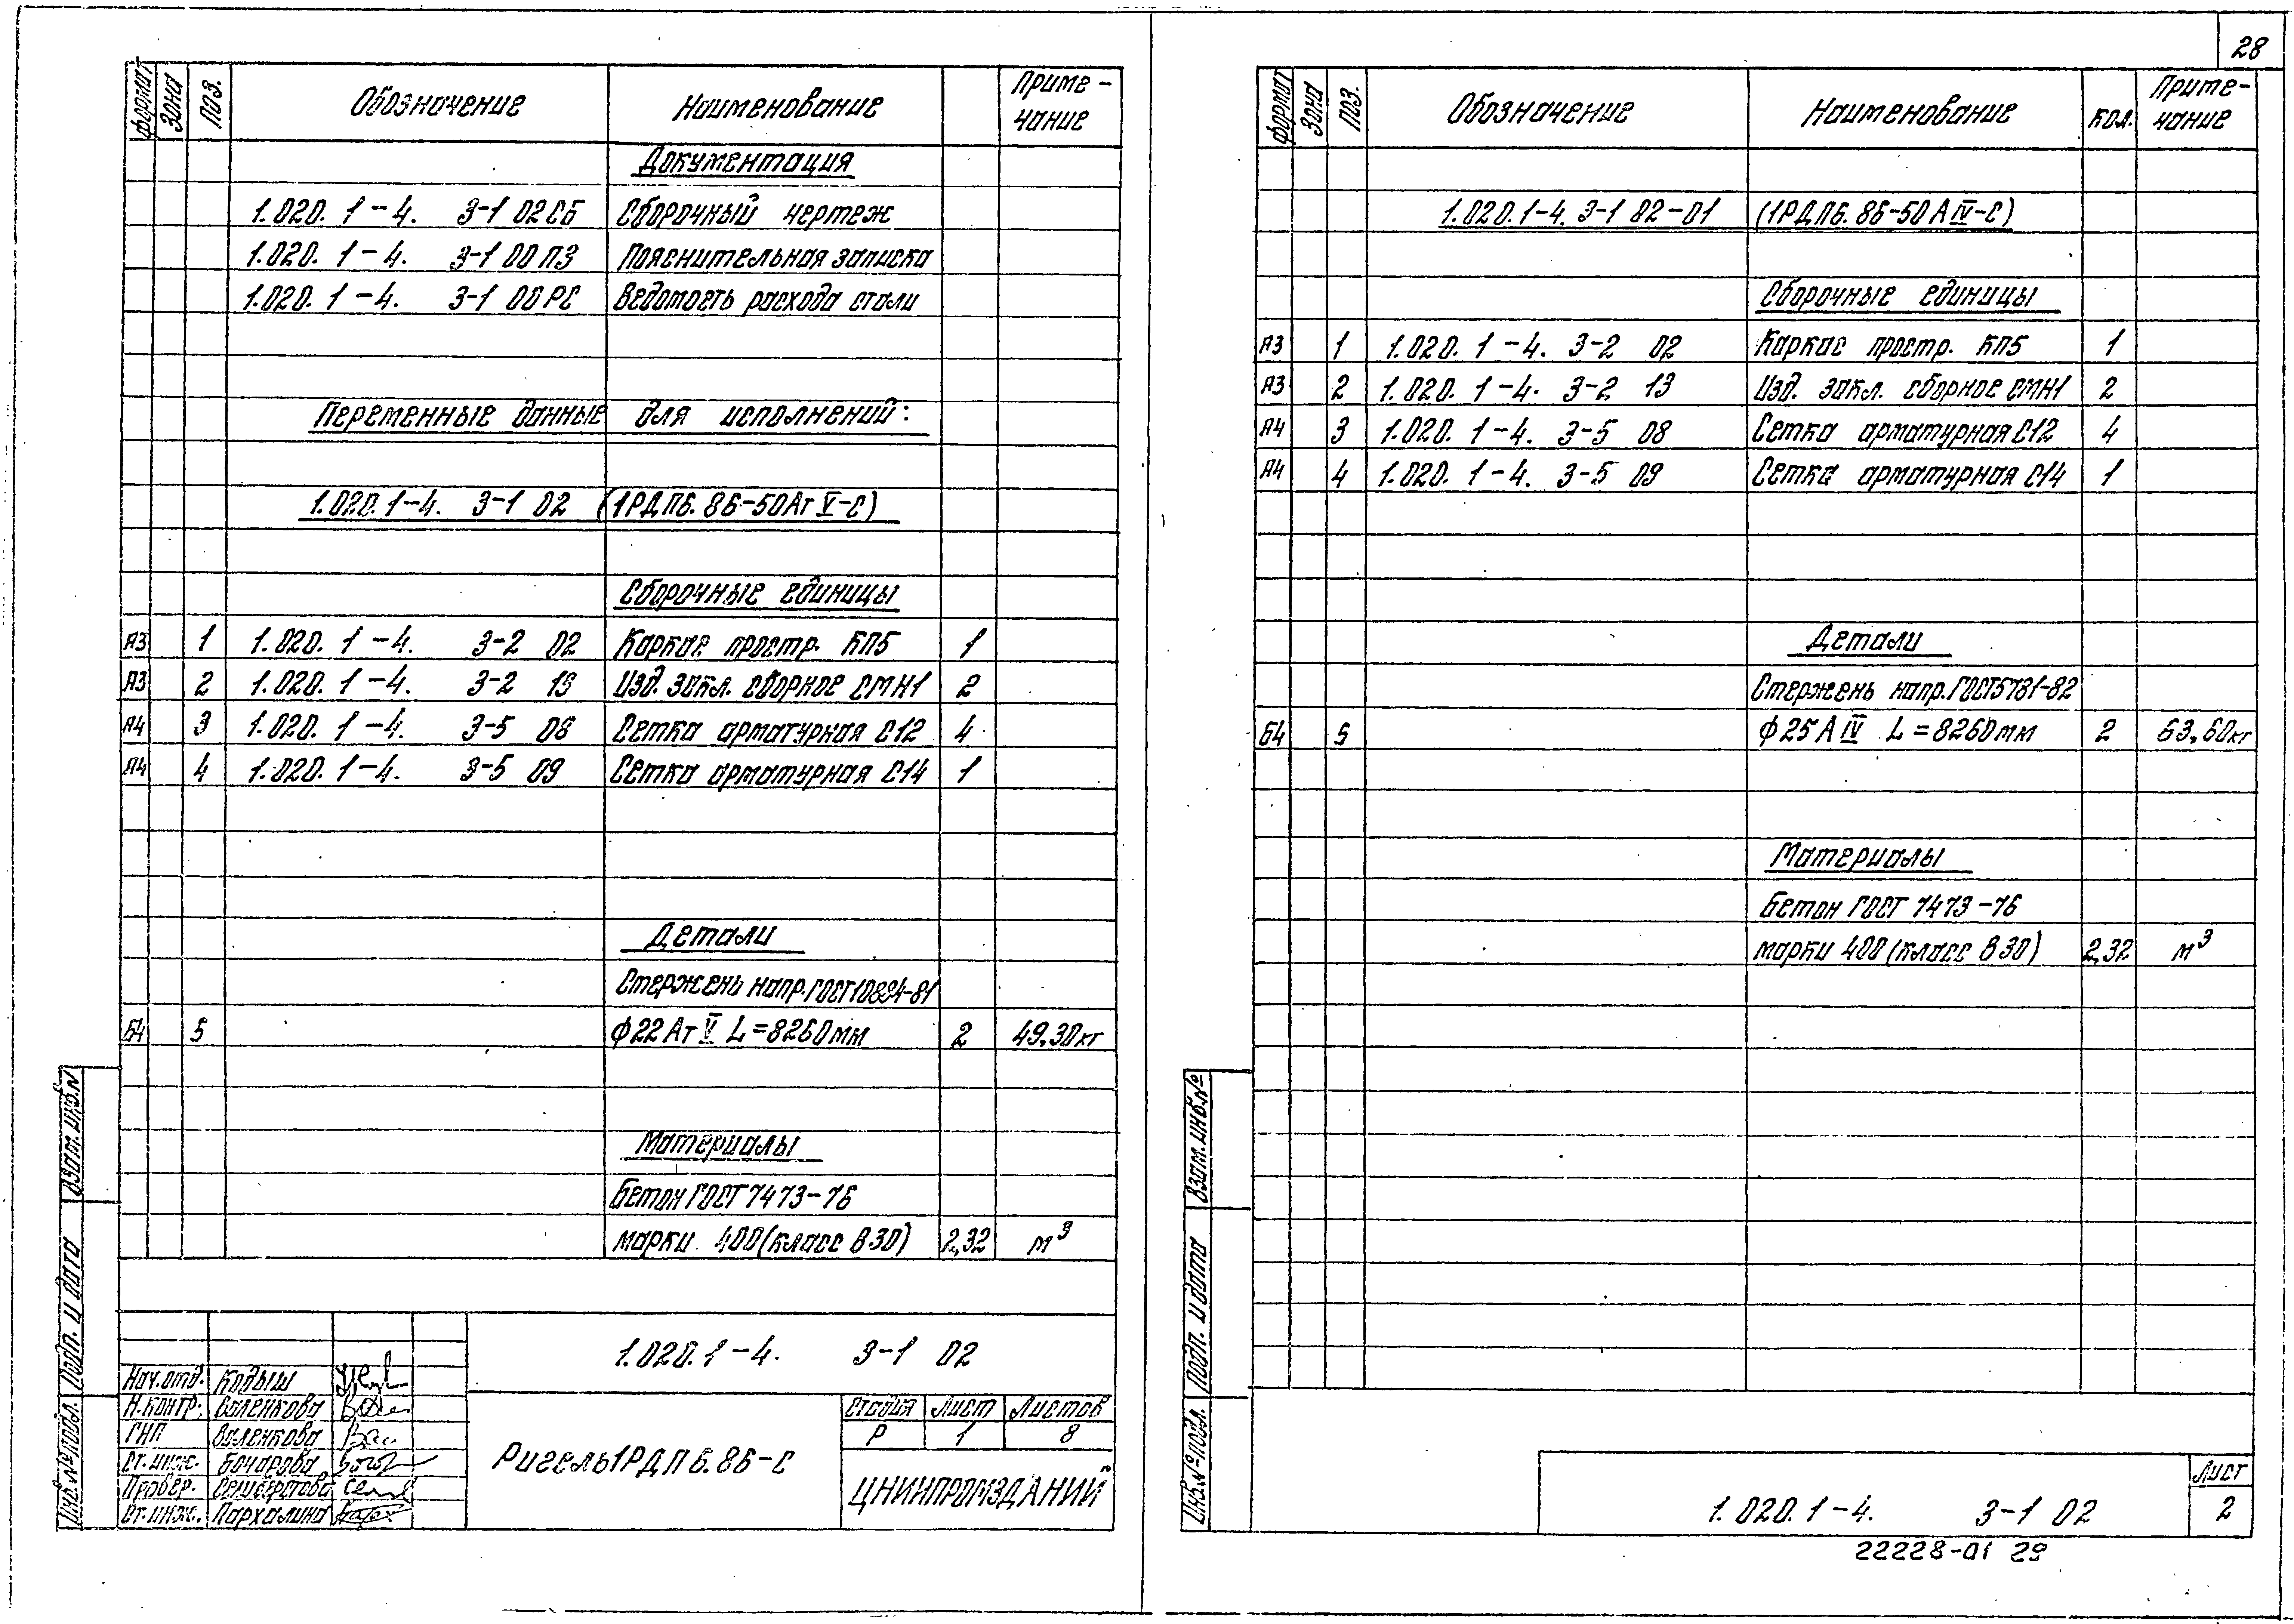 28
формат Зона Поз. Обозначение Наименование Приме-
чание
Документация
1.020.1-4. 3-1 02СБ Сборочный чертеж
1.020.1-4. 3-1 00ПЗ Пояснительная записка
1.020.1-4. 3-1 00РС Ведомость расхода стали
Переменные данные для исполнений:
1.020.1-4. 3-1 02 (1РДП6.86-50АтV-С)
Сборочные единицы
А3 1 1.020.1-4. 3-2 02 Каркас простр. КП5 1
А3 2 1.020.1-4. 3-2 13 Изд. закл. сборное СМН1 2
А4 3 1.020.1-4. 3-5 08 Сетка арматурная С12 4
А4 4 1.020.1-4. 3-5 09 Сетка арматурная С14 1
Детали
Стержень напр. ГОСТ10884-81
Б4 5 ф22АтV L=8260мм 2 49,30кг
Материалы
Бетон ГОСТ 7473-76
марки 400(класс В30) 2,32 м³
1.020.1-4. 3-1 02
Нач.отд. Кодыш
Н.контр. Валенкова
ГИП Валенкова
Ст.инж. Бочарова
Провер. Селиверстова
Ст.инж. Пархалина
Ригель1РДП6.86-С
Стадия Лист Листов
Р 1 8
ЦНИИПРОМЗДАНИЙ
Взам.инв.N
Подп. и дата
Инв.№подл.
формат Зона Поз. Обозначение Наименование Кол. Приме-
чание
1.020.1-4. 3-1 02-01 (1РДП6.86-50АIV-С)
Сборочные единицы
А3 1 1.020.1-4. 3-2 02 Каркас простр. КП5 1
А3 2 1.020.1-4. 3-2 13 Изд. закл. сборное СМН1 2
А4 3 1.020.1-4. 3-5 08 Сетка арматурная С12 4
А4 4 1.020.1-4. 3-5 09 Сетка арматурная С14 1
Детали
Стержень напр. ГОСТ5781-82
Б4 5 ф25АIV L=8260мм 2 63,60кг
Материалы
Бетон ГОСТ 7473-76
марки 400(класс В30) 2,32 м³
Взам.инв.№
Подп. и дата
Инв.№подл.
1.020.1-4. 3-1 02
Лист
2
22228-01 29